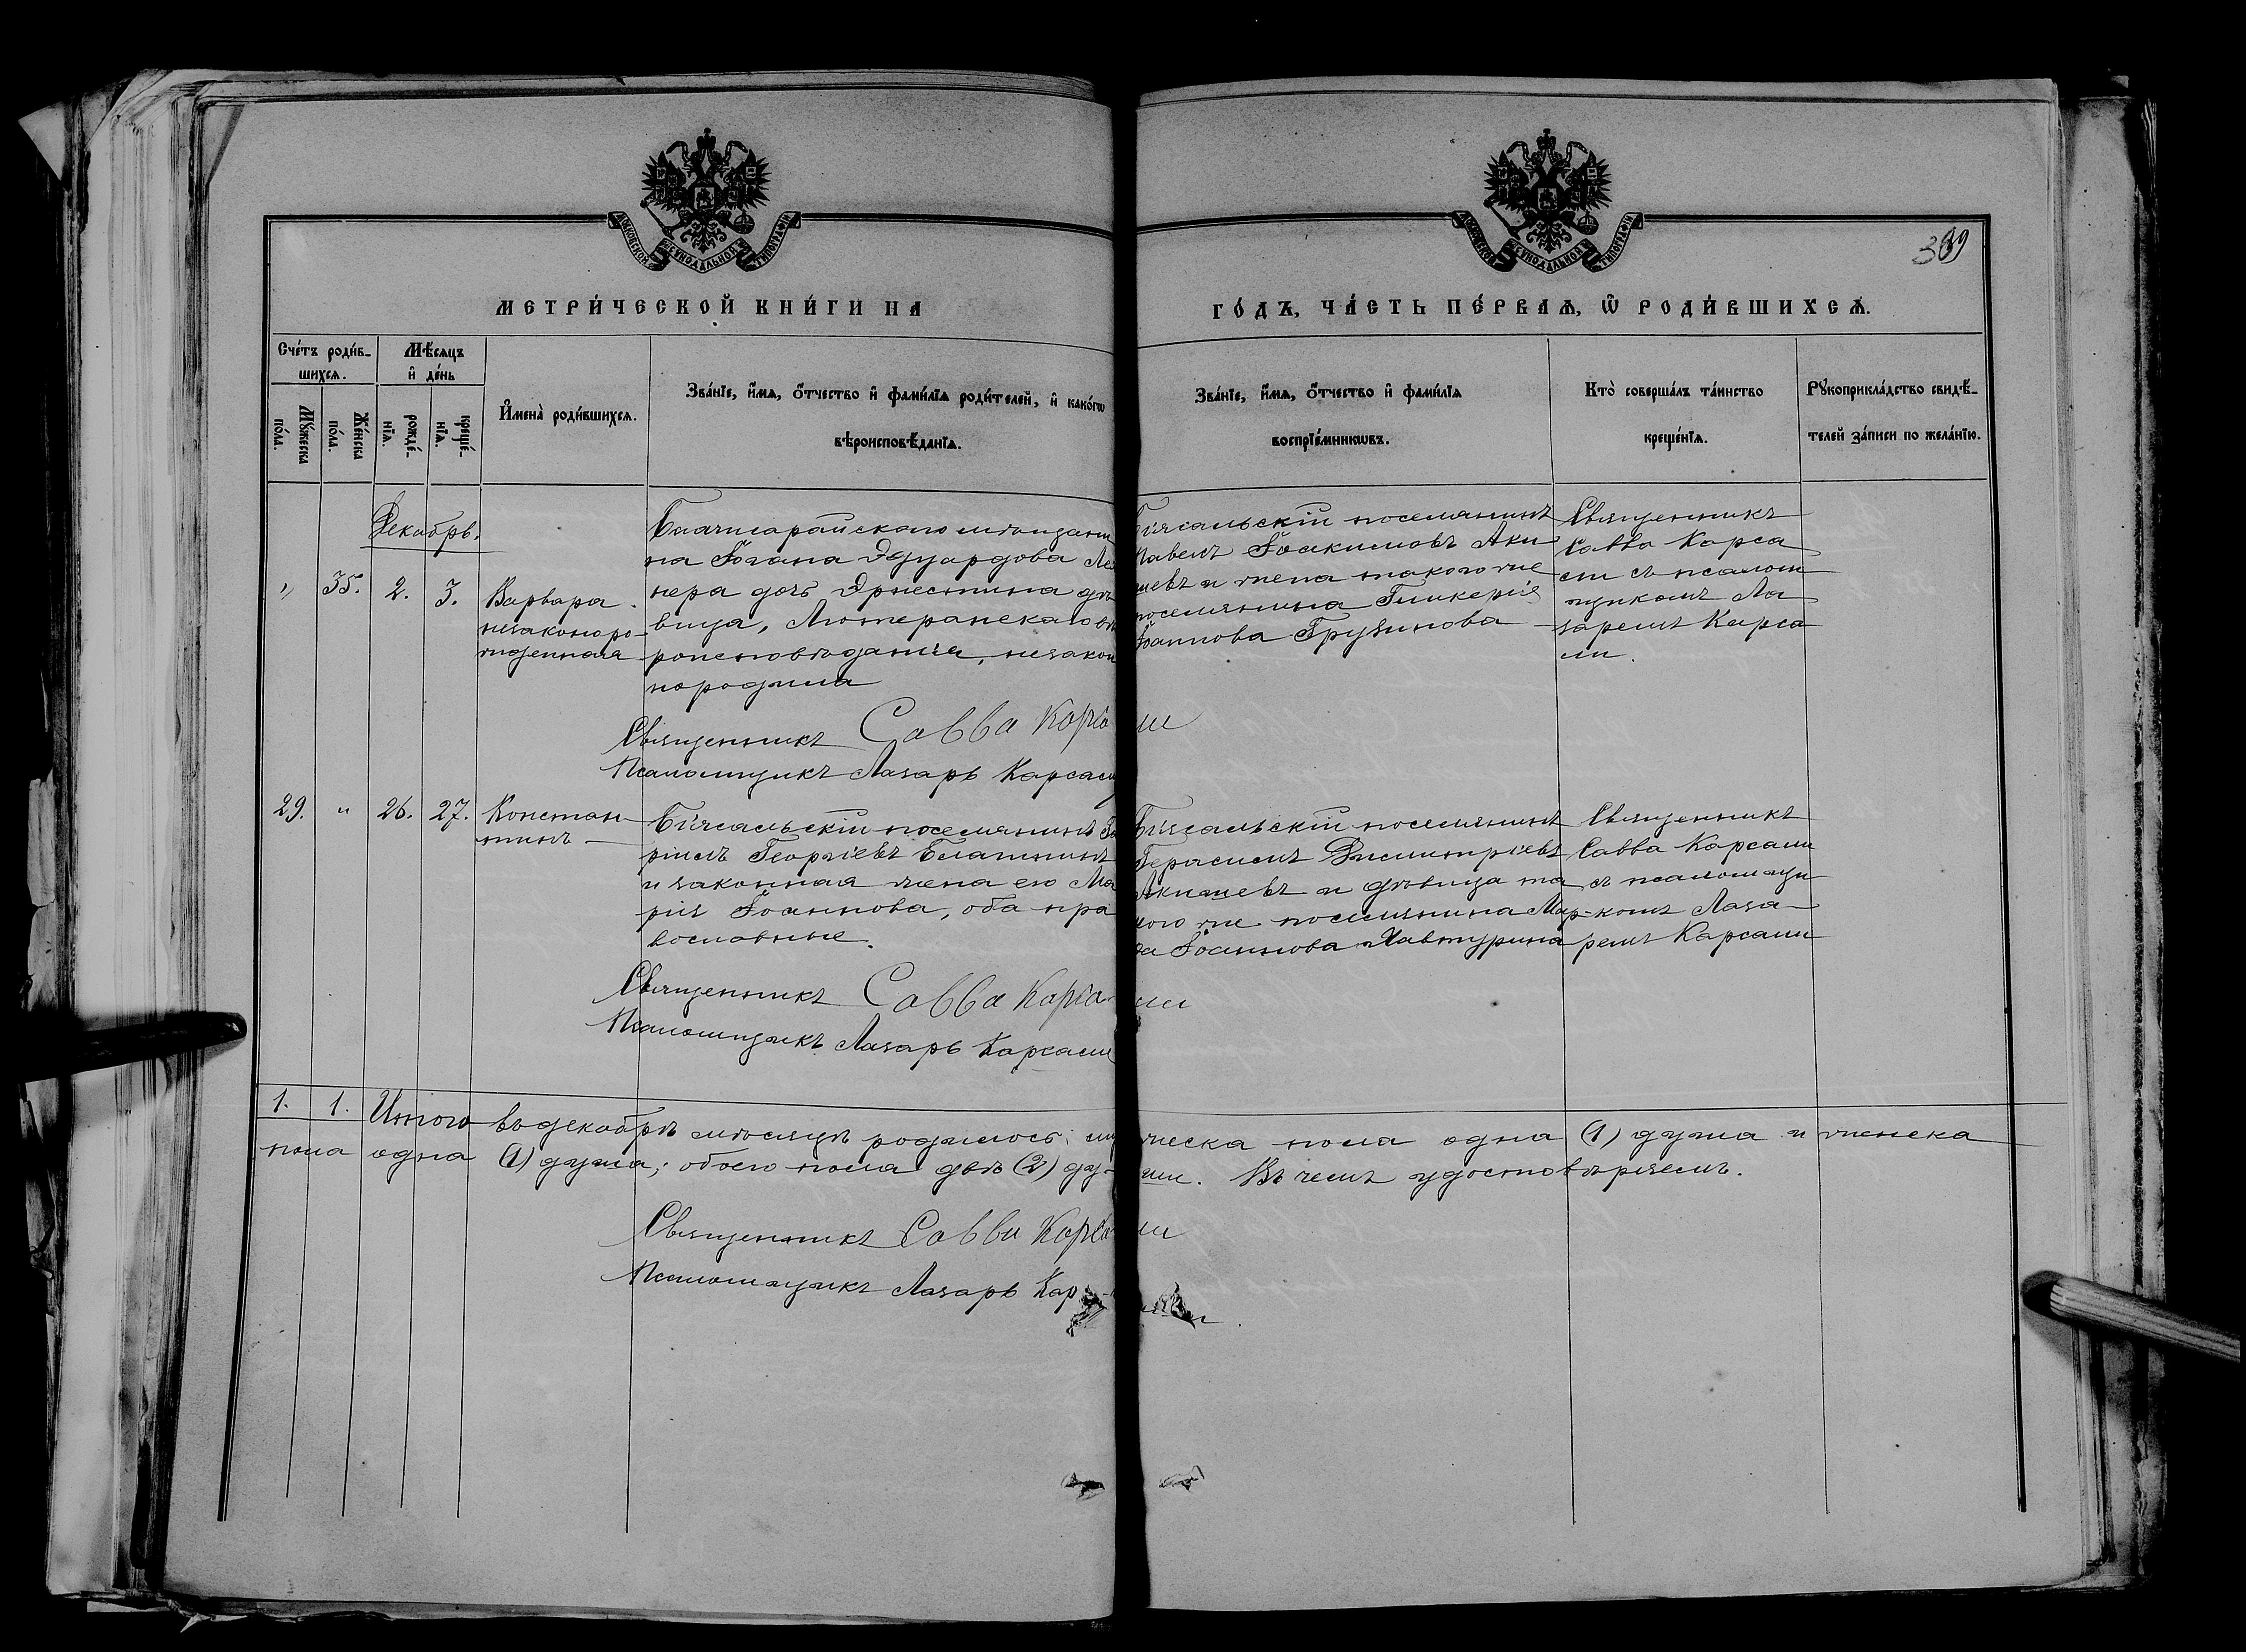 МОСКОВСКОЙ СѴНОДАЛЬНОЙ ТИПОГРАФІИ
МОСКОВСКОЙ СѴНОДАЛЬНОЙ ТИПОГРАФІИ
МЕТРИ́ЧЕСКОЙ КНИ́ГИ НА
ГО́ДЪ, ЧА́СТЬ ПЕ́РВАѦ, Ѿ РОДИ́ВШИХСѦ.
Сче́тъ роди́в-
шихсѧ.
Мꙋ́жеска
по́ла.
Же́нска
по́ла.
Мѣ́сѧцъ
и҆ де́нь
рожде́-
нїѧ.
креще́-
нїѧ.
И҆мена̀ роди́вшихсѧ.
Зва́нїе, и҆́мѧ, ѻ҆́тчество и҆ фамі́лїѧ роди́телей, и҆ како́гѡ
вѣроисповѣ́данїѧ.
Зва́нїе, и҆́мѧ, ѻ҆́тчество и҆ фамі́лїѧ
воспрїе́мникѡвъ.
Кто̀ соверша́лъ та́инство
креще́нїѧ.
Рꙋкоприкла́дство свидѣ́-
телей за́писи по жела́нїю.
Декабрь.
" 35. 2. 3.
Варвара
незаконоро-
жденная
Бахчисарайскаго мѣщани
на Іогана Эдуардова
нера дочь Эрнестина дѣ
вица, Лютеранскаго вѣ
роисповѣданія, незакон
нородила
Біясальскій поселянинъ
Павелъ Іоакимовъ Аки
шевъ и жена такого же
поселянина Гликерія
Іоаннова Грузинова
Священникъ
Савва Карса
сли съ псалом
щикомъ Ла
заремъ Карса
ли.
Священникъ Савва Карсали
Псаломщикъ Лазарь Карсали
29. " 26. 27.
Констан-
тинъ
Біясальскій поселянинъ
ріилъ Георгіевъ
и законная жена его Ма
рія Іоаннова, оба пра
вославные.
Біясальскій поселянинъ
Герасимъ Димитріевъ
Акишевъ и дѣвица та
кого же поселянина Мар-
ѳа Іоаннова Хавтурина
Священникъ
Савва Карсали
съ псаломщи
комъ Лаза-
ремъ Карсали
Священникъ Савва Карсали
Псаломщикъ Лазарь Карсали
1. 1. Итого въ декабрѣ мѣсяцѣ родилось: мужеска пола одна (1) душа и женска
пола одна (1) душа; обоего пола двѣ (2) души. Въ чемъ удостовѣряемъ.
Священникъ Савва Карсали
Псаломщикъ Лазарь